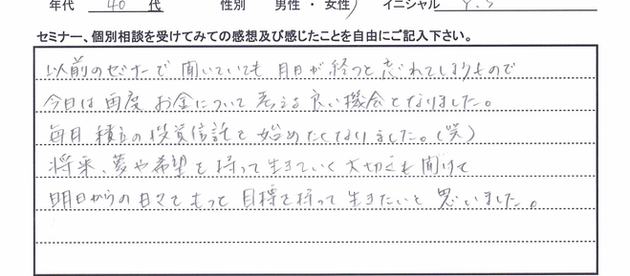 年代 40 代 性別 男性 ・ 女性 イニシャル Y.S
セミナー、個別相談を受けてみての感想及び感じたことを自由にご記入下さい。
以前のセミナーで 聞いていても 月日が 経つと 忘れてしまうもので
今日は 再度 お金について 考える 良い機会と なりました。
毎月 積立の 投資信託を 始めたくなりました。(笑)
将来、夢や希望を 持って 生きていく 大切さも 聞けて
明日からの 日々を もっと 目標を持って 生きたいと 思いました。